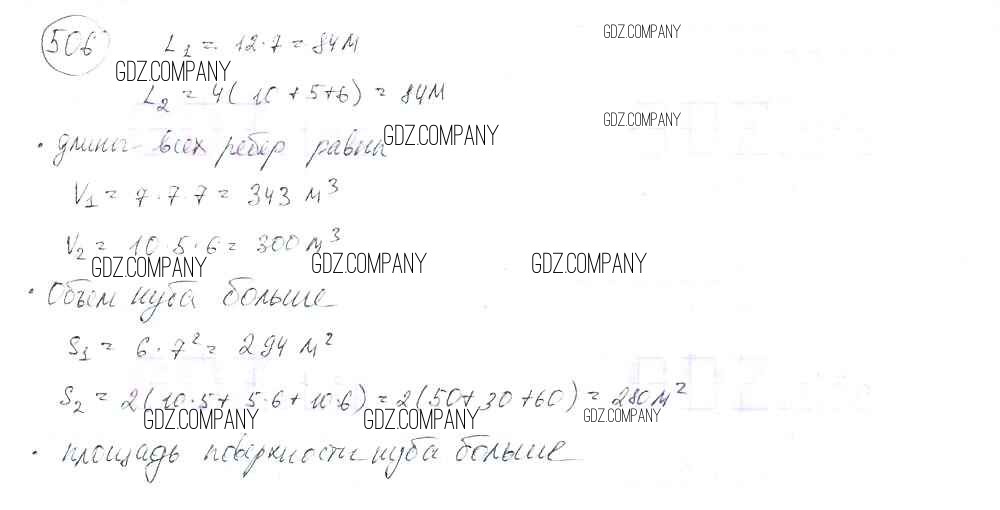 506
L₁ = 12·7 = 84 м
GDZ.COMPANY
GDZ.COMPANY
L₂ = 4(10 + 5+6) = 84 м
GDZ.COMPANY
• длины всех ребер равна
GDZ.COMPANY
V₁ = 7·7·7 = 343 м³
V₂ = 10·5·6 = 300 м³
GDZ.COMPANY GDZ.COMPANY GDZ.COMPANY
• Объем куба больше
S₁ = 6·7² = 294 м²
S₂ = 2(10·5 + 5·6 + 10·6) = 2(50 + 30 + 60) = 280 м²
GDZ.COMPANY GDZ.COMPANY GDZ.COMPANY
• площадь поверхности куба больше